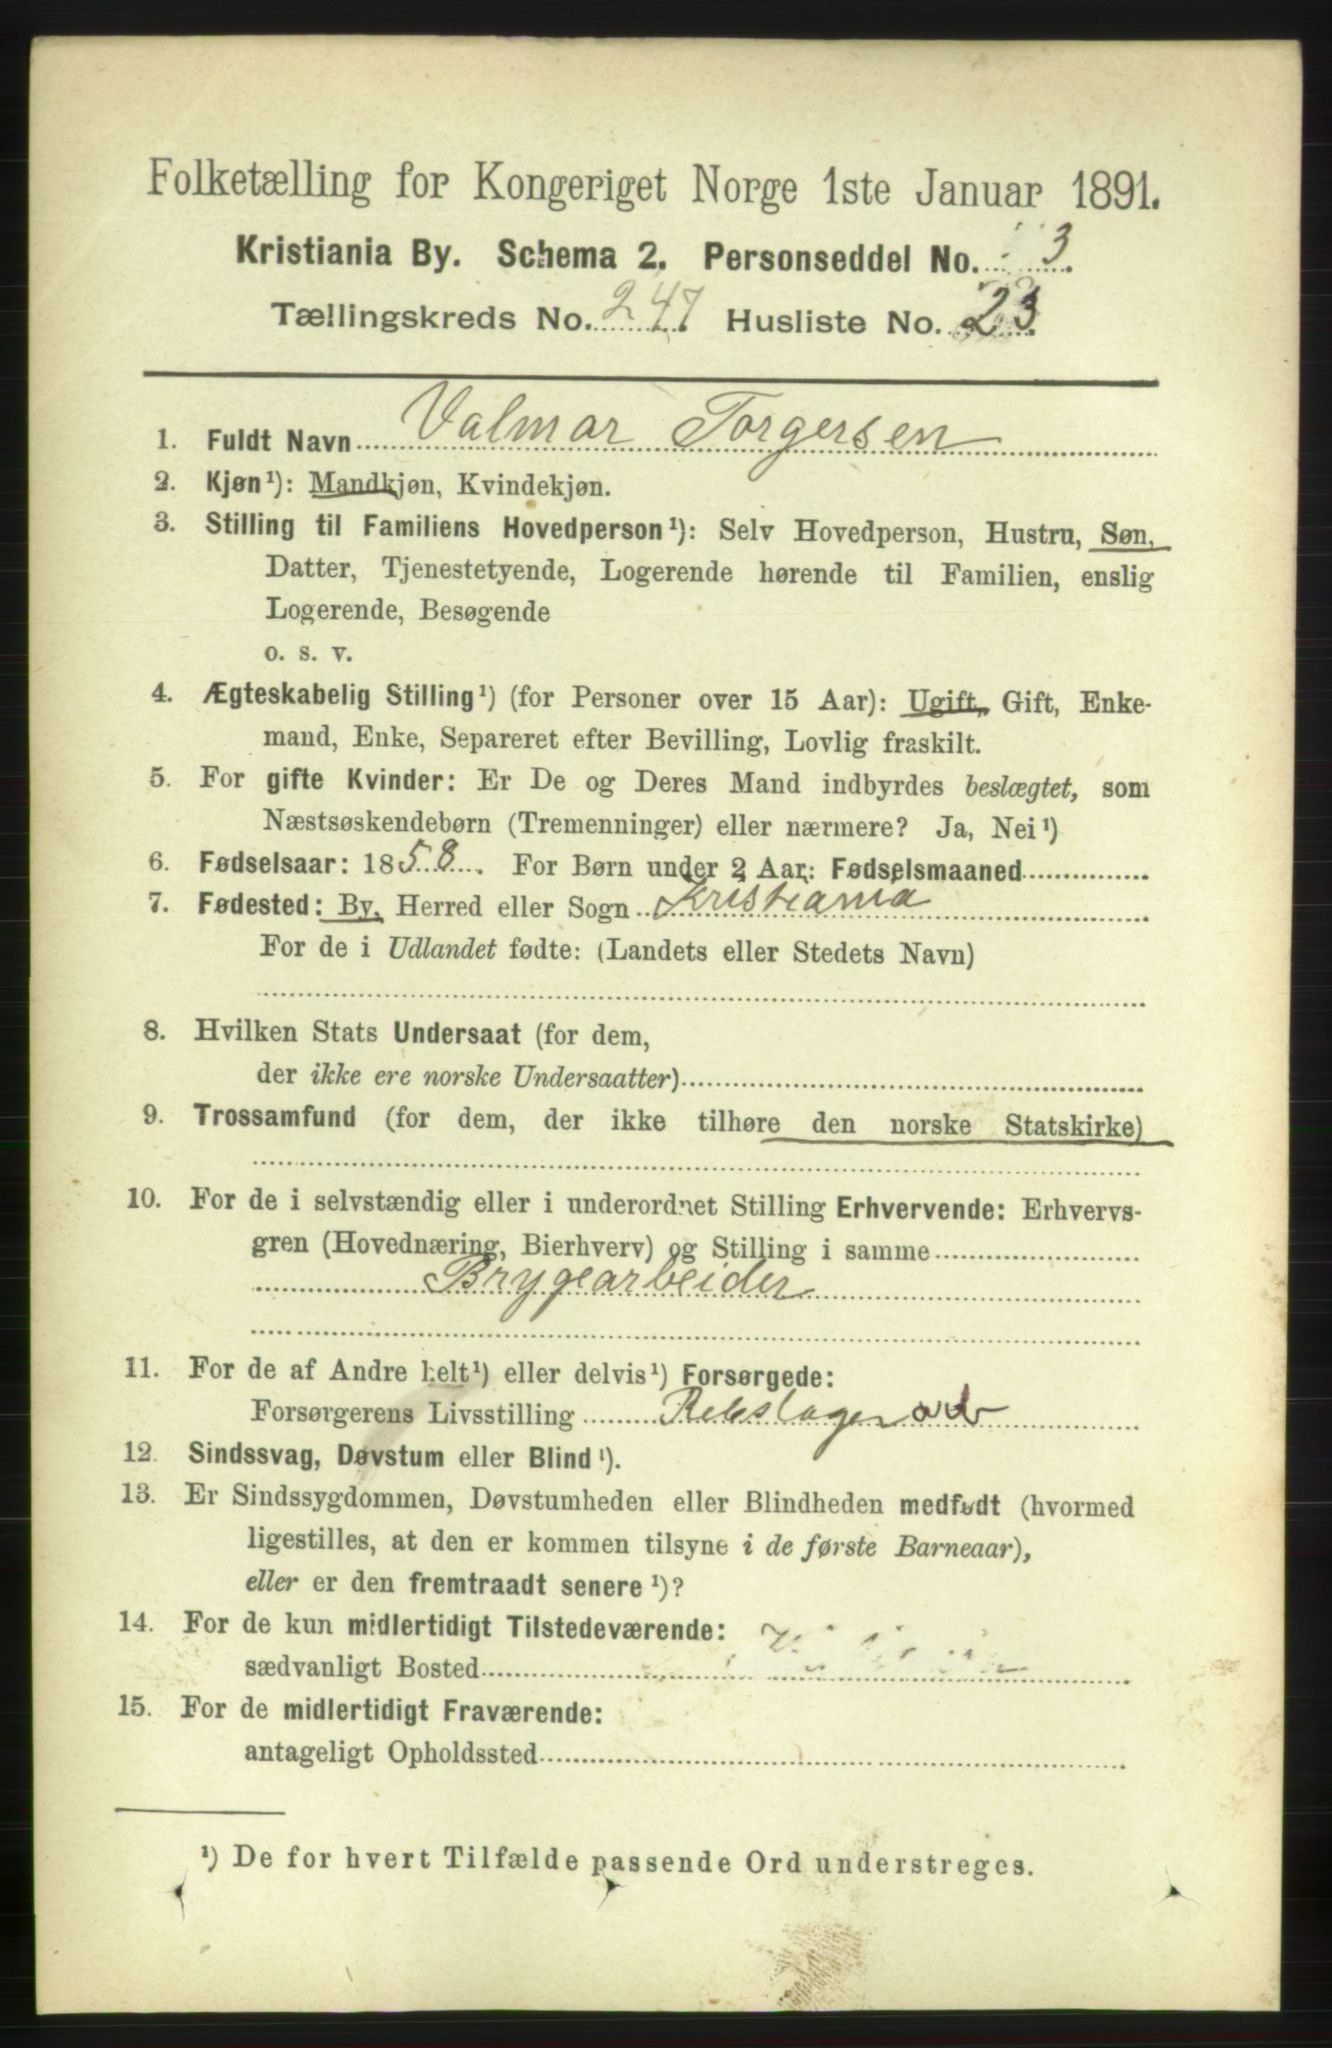 Folketælling for Kongeriget Norge 1ste Januar 1891.
Kristiania By. Schema 2. Personseddel No. 3.
Tællingskreds No. 247 Husliste No. 23.
1. Fuldt Navn Valmar Torgersen
2. Kjøn¹): Mandkjøn, Kvindekjøn.
3. Stilling til Familiens Hovedperson¹): Selv Hovedperson, Hustru, Søn,
Datter, Tjenestetyende, Logerende hørende til Familien, enslig
Logerende, Besøgende
o. s. v.
4. Ægteskabelig Stilling¹) (for Personer over 15 Aar): Ugift, Gift, Enke-
mand, Enke, Separeret efter Bevilling, Lovlig fraskilt.
5. For gifte Kvinder: Er De og Deres Mand indbyrdes beslægtet, som
Næstsøskendebørn (Tremenninger) eller nærmere? Ja, Nei¹)
6. Fødselsaar: 1858. For Børn under 2 Aar: Fødselsmaaned
7. Fødested: By, Herred eller Sogn Kristiania
For de i Udlandet fødte: (Landets eller Stedets Navn)
8. Hvilken Stats Undersaat (for dem,
der ikke ere norske Undersaatter)
9. Trossamfund (for dem, der ikke tilhøre den norske Statskirke)
10. For de i selvstændig eller i underordnet Stilling Erhvervende: Erhvervs-
gren (Hovednæring, Bierhverv) og Stilling i samme
Brygearbeider
11. For de af Andre helt¹) eller delvis¹) Forsørgede:
Forsørgerens Livsstilling Rebslager arb
12. Sindssvag, Døvstum eller Blind¹).
13. Er Sindssygdommen, Døvstumheden eller Blindheden medfødt (hvormed
ligestilles, at den er kommen tilsyne i de første Barneaar),
eller er den fremtraadt senere¹)?
14. For de kun midlertidigt Tilstedeværende:
sædvanligt Bosted
15. For de midlertidigt Fraværende:
antageligt Opholdssted
¹) De for hvert Tilfælde passende Ord understreges.